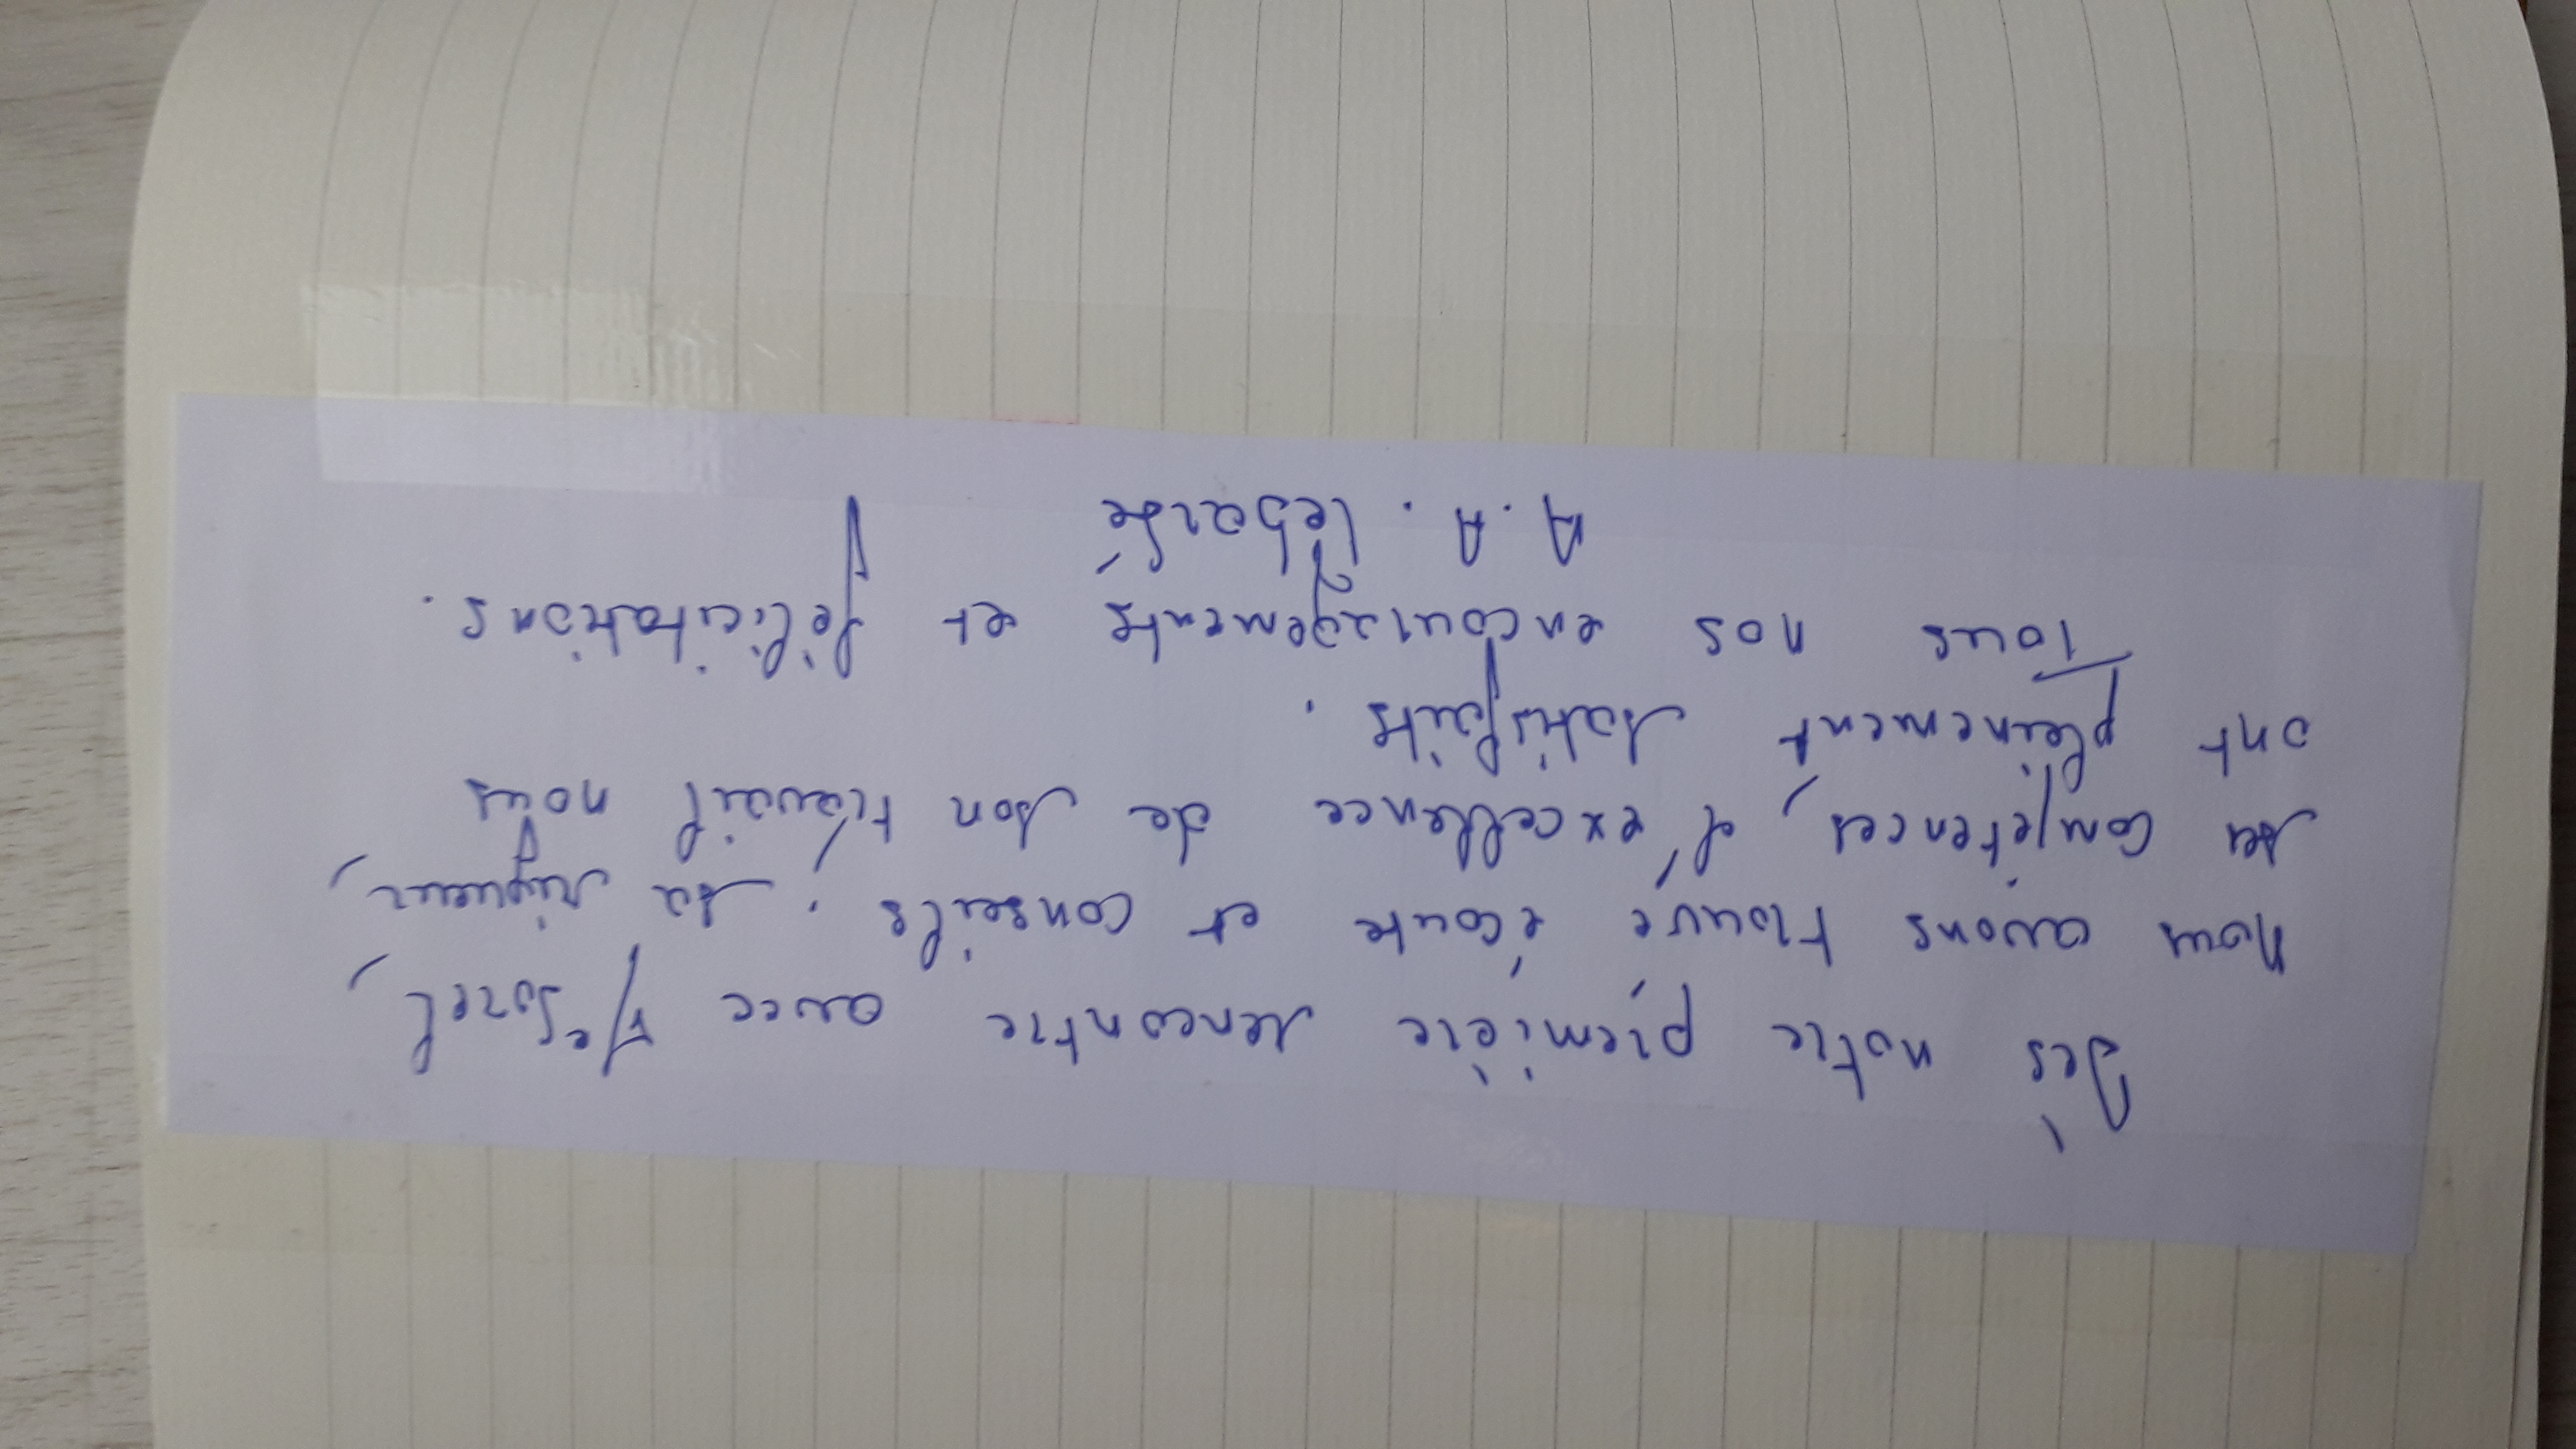 Dès notre première rencontre avec Me Sorel,
Nous avons trouvé écoute et conseils ; sa rigueur,
ses compétences, l'excellence de son travail nous
ont pleinement satisfaits.
Tous nos encouragements et félicitations.
A.A. Lebardé